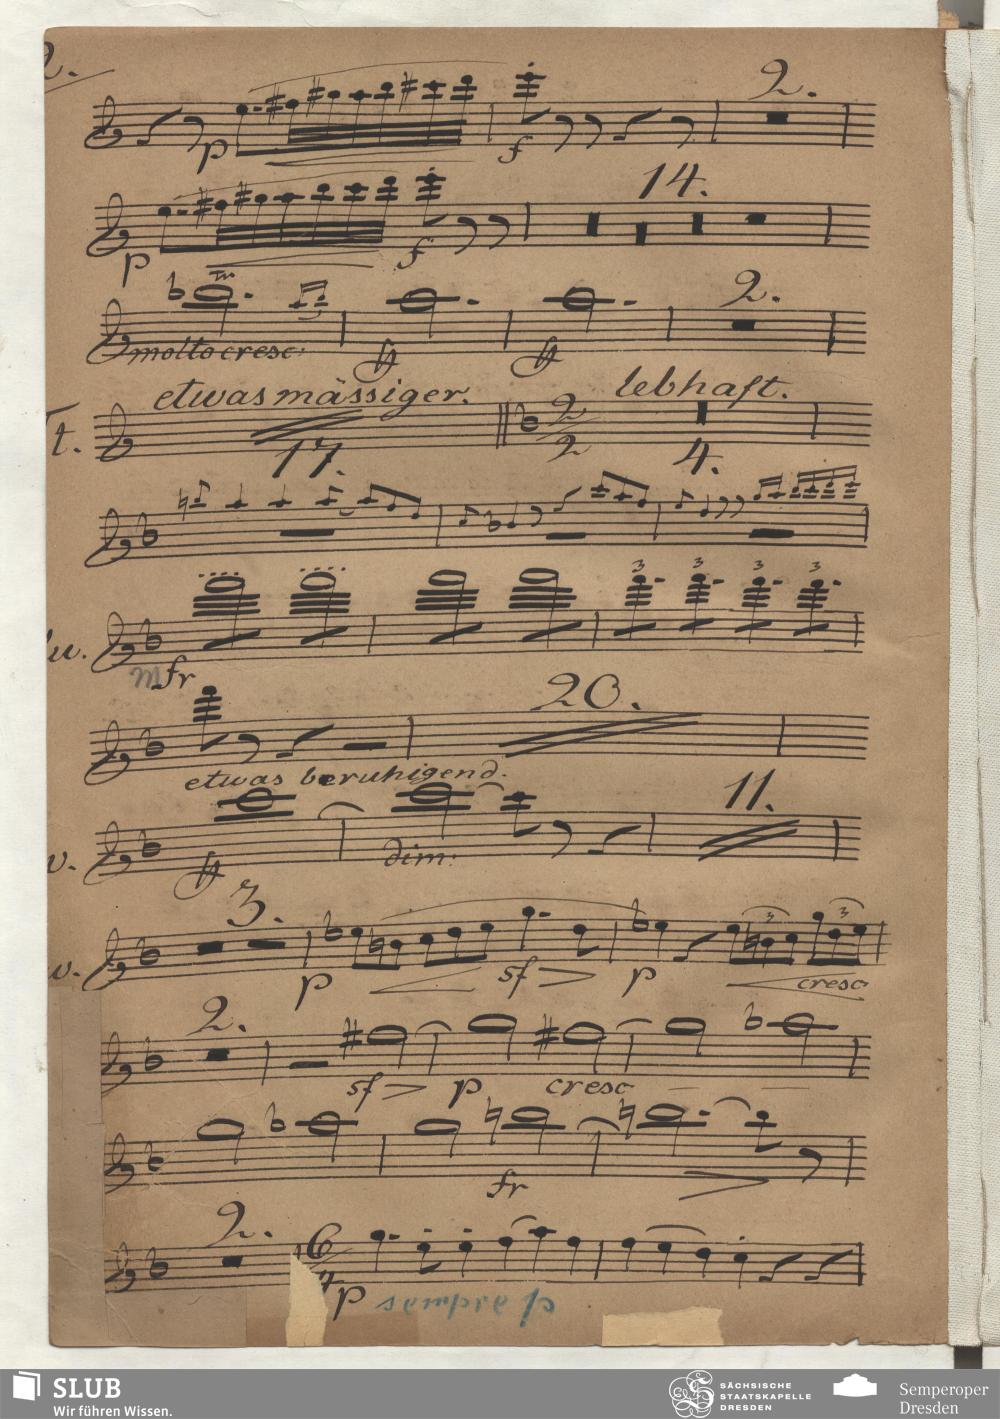 2.
2.
p f
14.
p f
2.
molto cresc:
etwas mässiger. lebhaft.
t. 17. 2 2 4.
3 3 3 3
u. mfr
20.
etwas beruhigend.
11.
v. dim:
3.
3 3
v. p sf p cresc
2.
sf p cresc
fr
2. 6 4
p sempre p
SLUB
Wir führen Wissen.
SÄCHSISCHE
STAATSKAPELLE
DRESDEN
Semperoper
Dresden